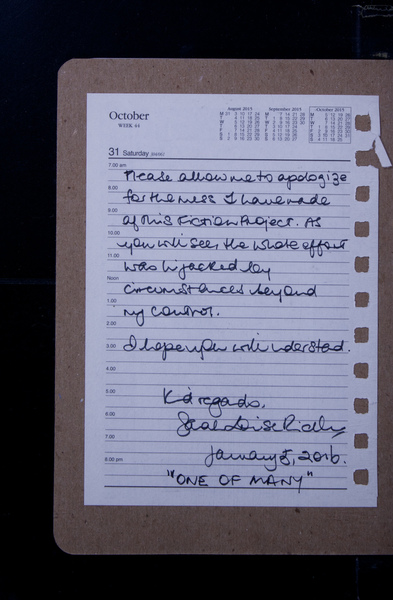 October
WEEK 44
August 2015 September 2015 October 2015
31 Saturday
7.00 am
Please allow me to apologize
8.00
for the mess I have made
9.00
of this Fiction Project. As
10.00
you will see, the whole effort
11.00
was hijacked by
Noon
circumstances beyond
1.00
my control.
2.00
3.00
I hope you will understand.
4.00
5.00
Kd regards,
6.00
7.00
January 5, 2016.
8.00 pm
"ONE OF MANY"